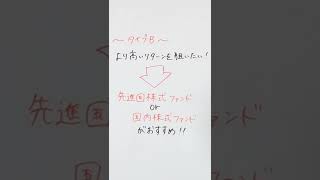 ～タイプB～
より高いリターンを狙いたい！
先進国株式ファンド
or
国内株式ファンド
がおすすめ！！